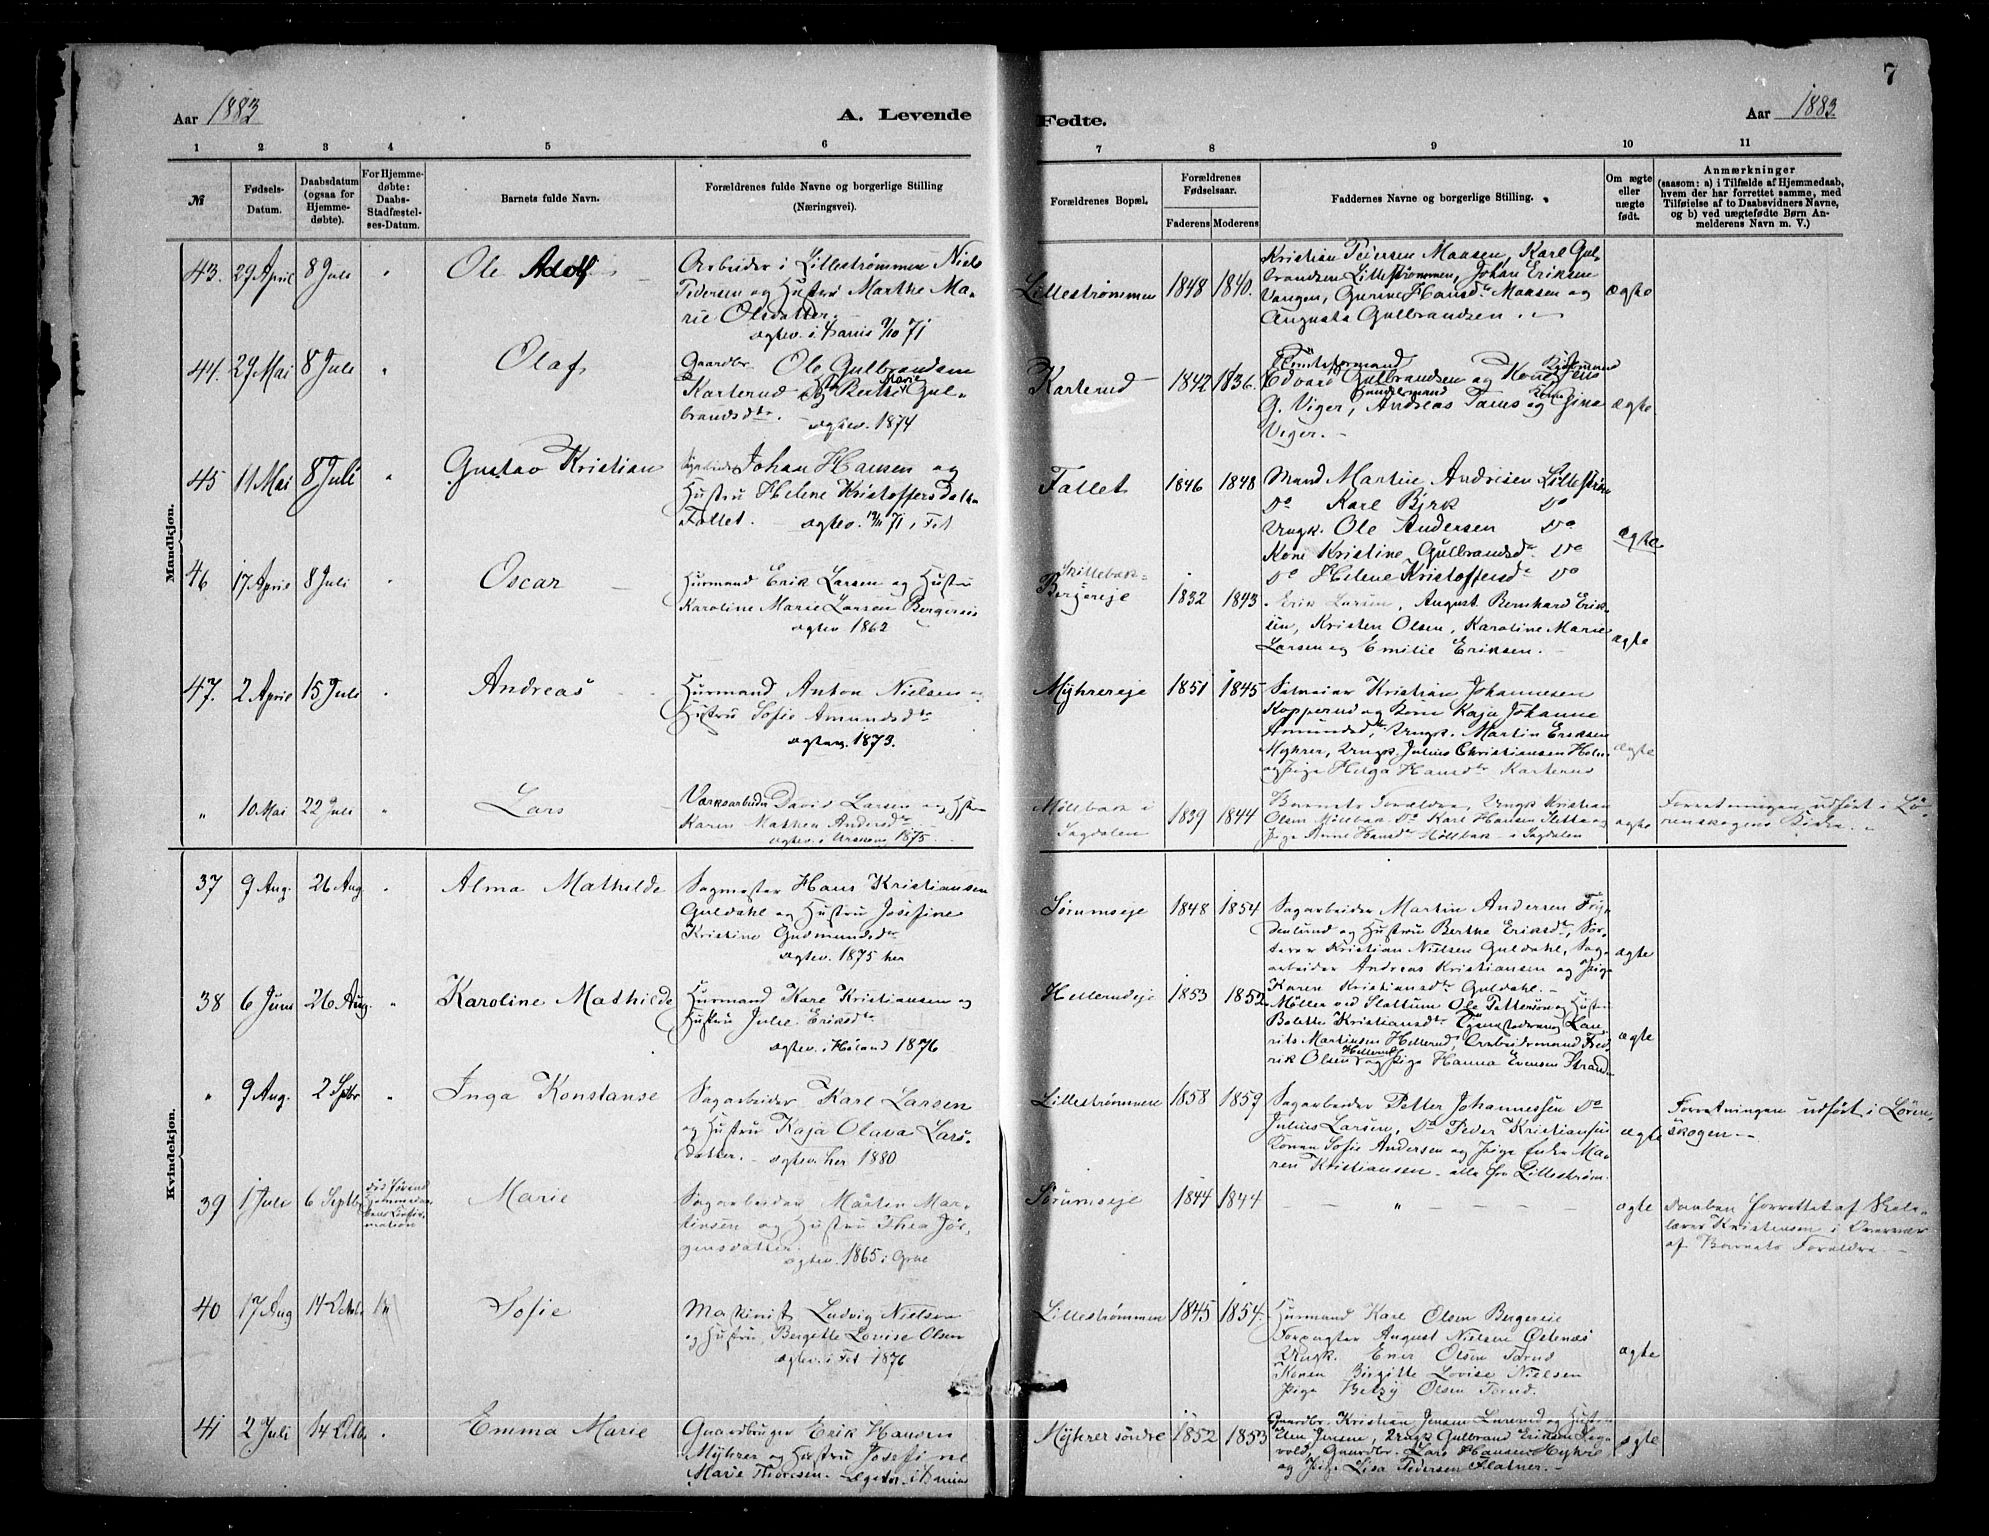 7
Aar 1883
A. Levende
Fødte.
Aar 1883.
1 2 3 4 5 6 7 8 9 10 11
№
Fødsels-
Datum.
Daabsdatum
(ogsaa for
Hjemme-
døbte).
For Hjemme-
døbte:
Daabs-
Stadfæstel-
ses-Datum.
Barnets fulde Navn.
Forældrenes fulde Navne og borgerlige Stilling
(Næringsvei).
Forældrenes Bopæl.
Forældrenes
Fødselsaar.
Faderens Moderens
Faddernes Navne og borgerlige Stilling.
Om ægte
eller
uægte
født.
Anmærkninger
(saasom: a) i Tilfælde af Hjemmedaab,
hvem der har forrettet samme, med
Tilføielse af to Daabsvidners Navne,
og b) ved uægtefødte Børn An-
melderens Navn m. V.)
Mandkjøn.
43. 29 April 8 Juli " Ole Adolf
Arbeider i Lillestrømmen Niels
Pedersen og Hustru Marthe Ma-
rie Olsdatter.
ægtev. i 9/10 71
Lillestrømmen 1848 1840.
Kristian Peiersen Maasen, Karl Gul-
brandsen Lillestrømmen, Johan Eriksen
Vangen, Gurine Hansdtr Maasen og
Augusta Gulbrandsen.
ægte
44. 29 Mai 8 Juli " Olaf
Gaardbr. Ole Gulbrandsen
Karterud og Hstr Berthe Marie Gul-
brandsdtr.
ægtev. 1874
Karterud 1842 1836.
Edvard Gulbrandsen og
G. Viger, Handelsmand Andreas Tams og Kone Gina
Viger.
ægte
45 11 Mai 8 Juli " Gustav Kristian
Johan Hansen og
Hustru Helene Kristoffersdatter
Fallet. ægtev. 71 i Fet
Fallet 1846 1848
Mand Martin Andresen Lillestrøm
Do Karl Birk Do
Ungk. Ole Andersen Do
Kone Kristine Gulbrandsd. Do
Do Helene Kristoffersd. Do
ægte
46 17 April 8 Juli " Oscar
Husmand Erik Larsen og Hustru
Karoline Marie Larsen Bergereie
ægtev 1862
Skillebæk-
Bergereje 1832 1843
Erik Larsen, August Bernhard Erik-
sen, Kristen Olsen, Karoline Marie
Larsen og Emilie Eriksen.
ægte
47. 2 April 15 Juli " Andreas
Husmand Anton Nielsen og
Hustru Sofie Amundsdtr
ægtev. 1873.
Myhrereje 1851 1845
Kristian Johannesen
Kopperud og Kone Kaja Johanne
Amundsdtr, Ungk. Martin Eriksen
Myhrer, Ungk. Julius Christiansen
og Pige Helga Hansdtr Karterud
ægte
" 10 Mai 22 Juli " Lars
Værksarbeider David Larsen og Hstru
Karen Mathea Andersdtr
ægtev. i Urskoug 1875.
Møllbæk i
Sagdalen 1839 1844
Barnets Forældre, Ungk Kristian
Olsen Møllbæk, Do Karl Hansen og
Pige Anne Hansdtr Møllbæk i Sagdalen
ægte
Forretningen udført i Lø-
renskogens Kirke.
Kvindekjøn.
37 9 Aug. 26 Aug " Alma Mathilde
Sagmester Hans Kristiansen
Guldahl og Hustru Josefine
Kristine Gudmundsdtr
ægtev. 1875 her
Sørumseje 1848 1854
Sagarbeider Martin Andersen
og Hustru Berthe Eriksdtr, Sor-
terer Kristian Nielsen Guldahl, Sag-
arbeider Andreas Kristiansen og Pige
Karen Kristiansdtr Guldahl.
ægte
38 6 Juni 26 Aug. " Karoline Mathilde
Husmand Karl Kristiansen og
Hustru Julie Eriksdtr
ægtev. i Høland 1876
Hellerudeje 1853 1852
Møller ved Slattum Ole Pettersen og Hustru
Bolette Kristiansdtr, Tjenestedreng Lau-
rits Martinsen Hellerud, Arbeidsmand Fred-
rik Olsen Hellerud og Pige Hanna Evensen Strand
ægte
" 9 Aug. 2 Sptbr " Inga Konstanse
Sagarbeider Karl Larsen
og Hustru Kaja Olava Lars-
datter. ægtev. her 1880
Lillestrømmen 1858 1859
Sagarbeider Petter Johannessen Do
Julius Larsen, Do Peder Kristiansen
Konen Sofie Andersen og Pige Enke Ma-
ren Kristiansen alle fra Lillestrøm.
ægte
Forretningen udført i Løren-
skogen
39 1 Juli 6 Septbr død før
Hjemmedaa-
bens Confir-
mation Marie
Sagarbeider Martin Mar-
tinsen og Hustru Thea Jør-
gensdatter.
ægtev 1865 i Grue
Sørumseje 1844 1844
"
ægte
Daaben forrettet af Skole-
lærer Kristensen i Nærvær
af Barnets Forældre
40 17 Aug 14 Octobr " Sofie
Maskinist Ludvig Nielsen
og Hustru Bergitte Lovise Olsen
ægtev. i Fet 1876
Lillestrømmen 1845 1854.
Husmand Karl Olsen Bergereie
Forpagter August Nielsen Østenæs
Ungk. Olsen
Konen Birgitte Lovise Nielsen
Pige Betzy Olsen
ægte
41 2 Juli 14 Octbr " Emma Marie
Gaardbruger Erik Hansen
Myhrer og Hustru Josefine
Marie Thoresen.
Myhrer søndre 1852 1853
Gaardbr. Kristian Jensen og Hustru
Jensen, Ungk Gulbrand Eriksen
Gaardbr. Lars Hansen Myhre
og Pige Lisa Pedersen Flatner.
ægte